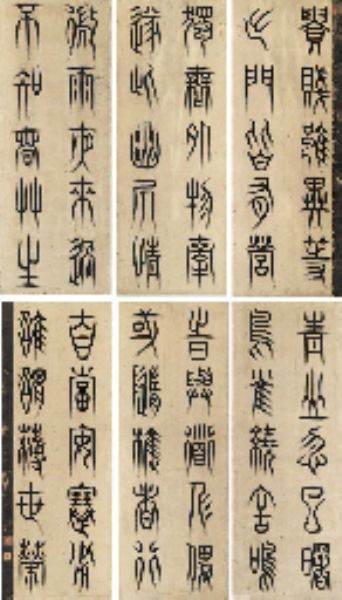 貴賤雖異等
出門皆有營
獨無外物牽
遂此幽居情
微雨夜來過
不知春草生
青山忽已曙
鳥雀繞舍鳴
時與道人偶
或隨樵者行
自當安蹇劣
誰謂薄世榮